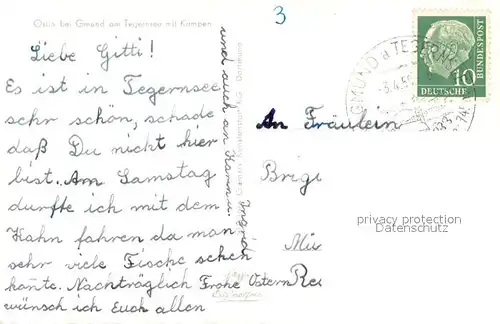 Ostin bei Gmund am Tegernsee mit Kampen
3
Liebe Gitti!
Es ist in Tegernsee
sehr schön, schade
daß Du nicht hier
bist. Am Samstag
durfte ich mit dem
Kahn fahren da man
sehr viele Fische sehen
konnte. Nachträglich Frohe Ostern
wünsch ich Euch allen
und auch an
Ingrid
An Fräulein
Brigi
Mü
Re
DEUTSCHE
BUNDESPOST
10
GMUND a TEGERNS
privacy protection
Datenschutz